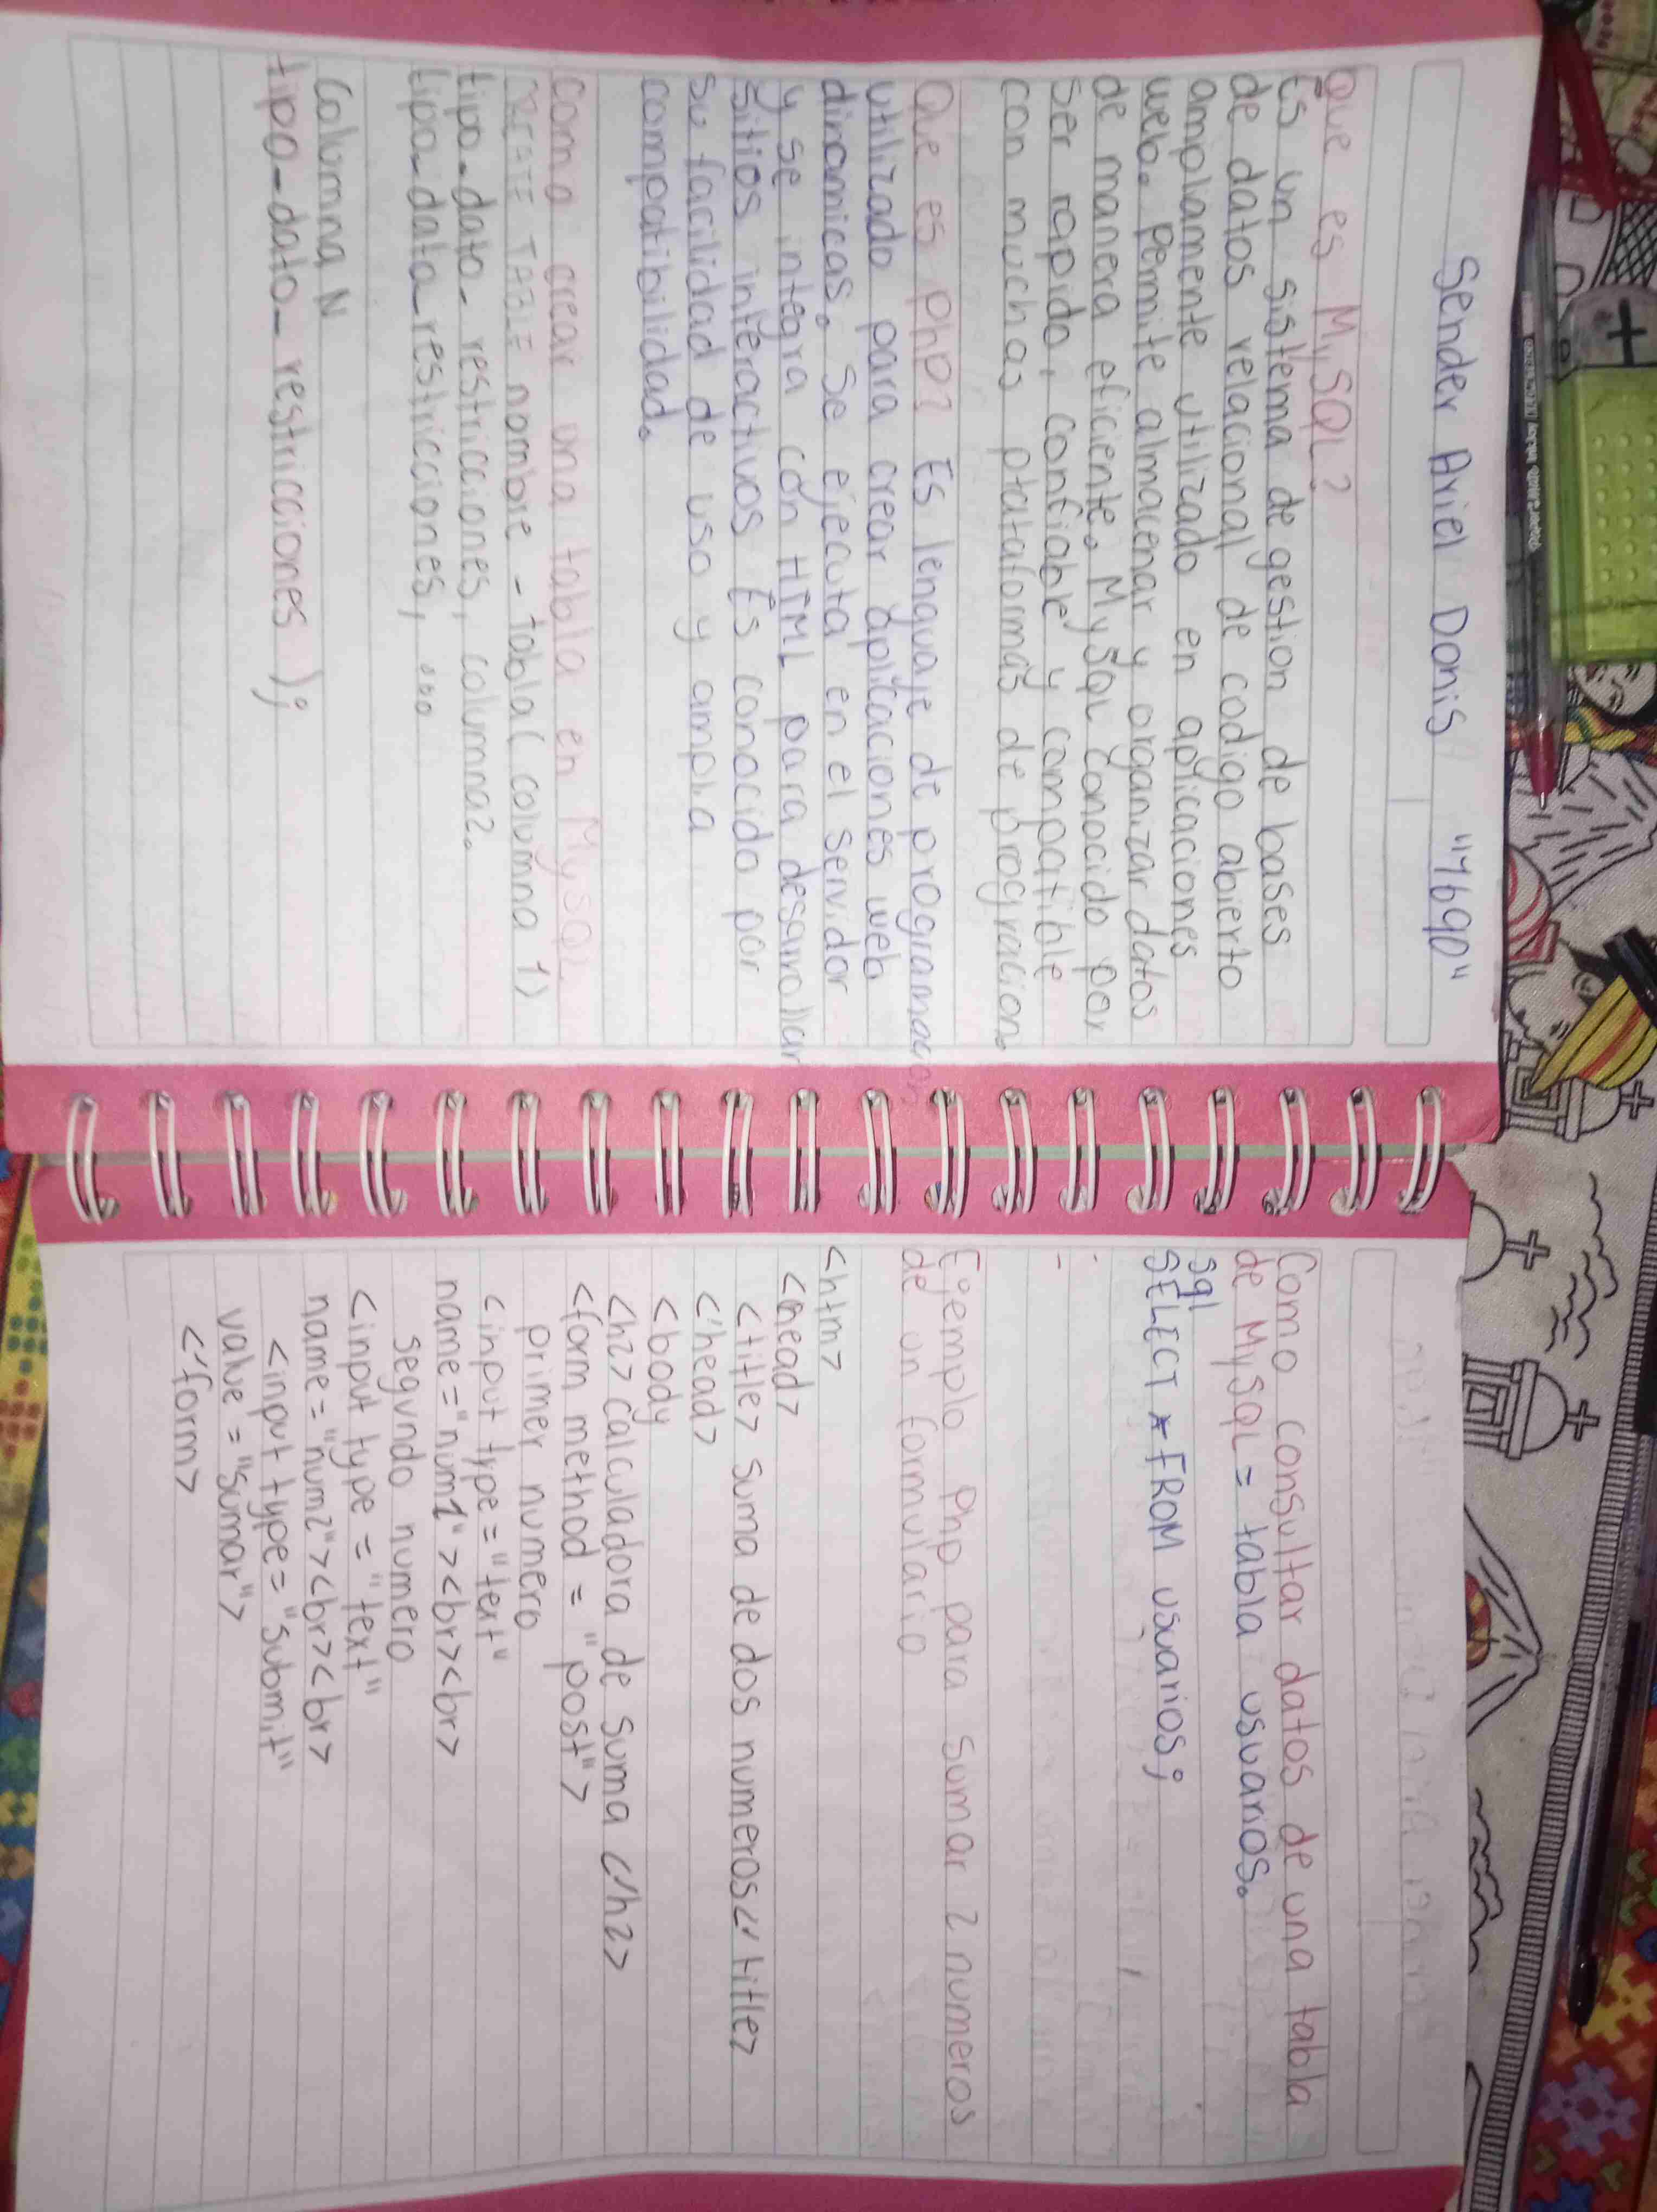 Sender Ariel Donis "7690"
Que es MySQL?
Es un sistema de gestion de bases
de datos relacional de codigo abierto
ampliamente utilizado en aplicaciones
web. Permite almacenar y organizar datos
de manera eficiente. MySQL conocido por
ser rapido, confiable y compatible
con muchas plataformas de progracion.
Que es PhP? Es lenguaje de programacion
utilizado para crear aplicaciones web
dinamicas. Se ejecuta en el servidor
y se integra con HTML para desarrollar
sitios interactivos Es conocido por
su facilidad de uso y amplia
compatibilidad.
Como crear una tabla en MySQL
CREATE TABLE nombre - tabla( columna 1)
tipo-dato- restricciones, columna2.
tipo_data_restricciones, ...
Columna N
tipo-dato- restricciones );
Como consultar datos de una tabla
de MySQL= tabla usuarios.
sql
SELECT * FROM usuarios;
Ejemplo Php para sumar 2 numeros
de un formulario
<htm>
<head>
<title> Suma de dos numeros</title>
</head>
<body
<h2> calculadora de Suma </h2>
<form method = "post">
primer numero
<input type="text"
name="num1"><br><br>
segundo numero
<input type = "text"
name= "num2"><br><br>
<input type= "submit"
value = "Sumar">
</form>